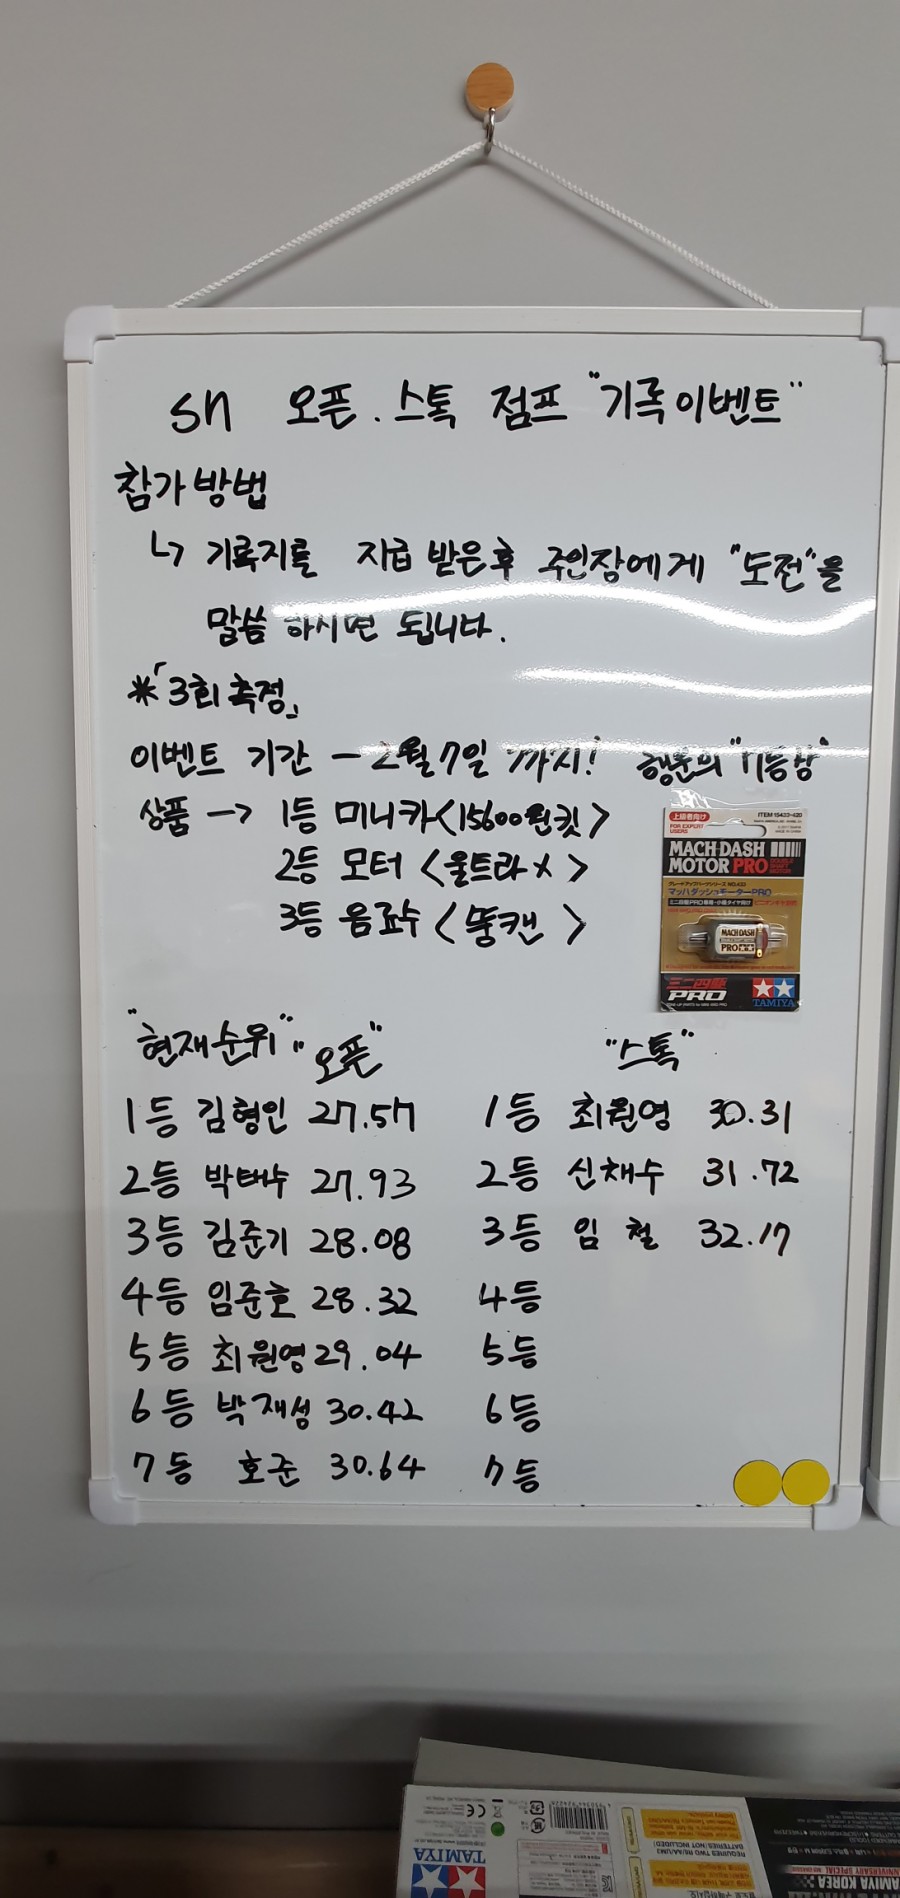 sn 오픈.스톡 점프 "기록이벤트"
참가방법
↳ 기록지를 지급 받은후 주인장에게 "도전"을
말씀 하시면 됩니다.
*「3회측정」
이벤트 기간 - 2월7일 까지! 행운의 "7등상"
상품 → 1등 미니카<15600원킷>
2등 모터 <울트라 x>
3등 음료수 <뚱캔>
上級者向け
FOR EXPERT USERS
ITEM 15433-620
MACH DASH
MOTOR PRO DOUBLE SHAFT MOTOR
マッハダッシュモーターPRO
MACH DASH
PRO
ミニ四駆
PRO
TAMIYA
"현재순위" "오픈" "스톡"
1등 김형인 27.57 1등 최원영 30.31
2등 박태수 27.93 2등 신채수 31.72
3등 김준기 28.08 3등 임 철 32.17
4등 임준호 28.32 4등
5등 최원영 29.04 5등
6등 박재성 30.42 6등
7등 호준 30.64 7등
TAMIYA
REQUIRES TWO R6/AA/UM3
BATTERIES (NOT INCLUDED)
ANNIVERSARY SPECIAL
TAMIYA KOREA